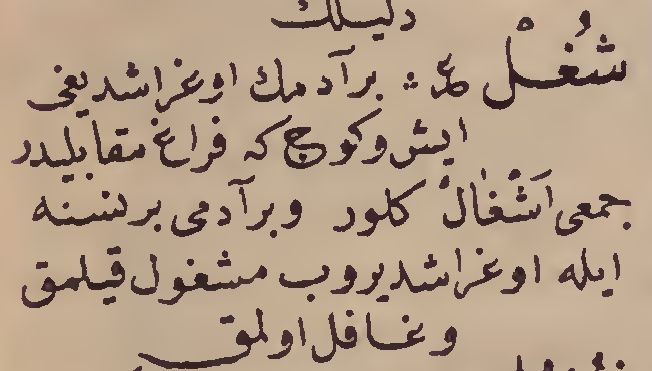 دليلك
شُغْلْ ع : برآدمك اوغراشديغى
ايش وكوچ كه فراغ مقابليدر
جمعى اَشْغالْ كلور وبرآدمى برنسنه
ايله اوغراشديروب مشغول قيلمق
وغافل اولمق